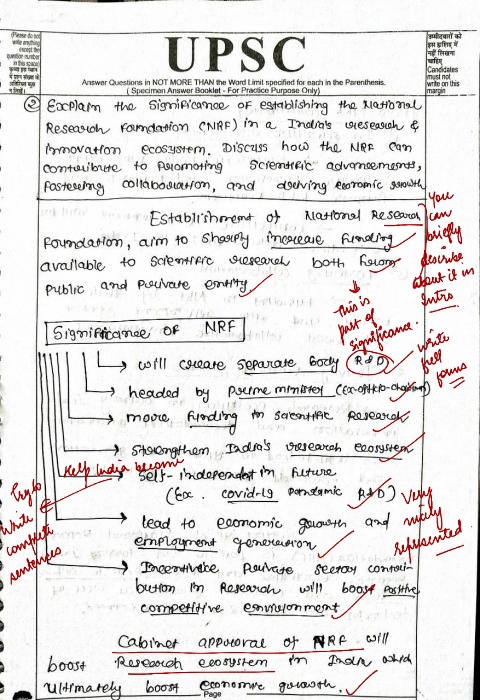 (Please do not write anything except the question number in this space)
कृपया इस स्थान में प्रश्न संख्या के अतिरिक्त कुछ न लिखें
UPSC
उम्मीदवारों को इस हाशिए में नहीं लिखना चाहिए
Candidates must not write on this margin
Answer Questions in NOT MORE THAN the Word Limit specified for each in the Parenthesis.
( Specimen Answer Booklet - For Practice Purpose Only)
② Explain the significance of establishing the National
Research Foundation (NRF) in a India's research &
innovation ecosystem. Discuss how the NRF can
contribute to Promoting Scientific advancements,
Fostering collaboration, and driving economic growth
Establishment of National Research
Foundation, aim to sharply increase funding
available to scientific research both from
Public and Private entity
You can briefly describe about it in Intro.
This is part of significance.
Significance OF NRF
will create separate body R&D
write full forms
headed by Prime minister (Ex-officio-
more funding to scientific Research
strengthen India's research ecosystem
Help India become
self-independent in future
(Ex. covid-19 pandamic R&D)
Try to write complete sentences
Very nicely represented
lead to economic growth and
employment generation
Incentivize Private sector contri-
bution in Research will boost Positive
competitive environment
Cabinet approval of NRF will
boost Research ecosystem in India which
Ultimately boost economic growth.
Page